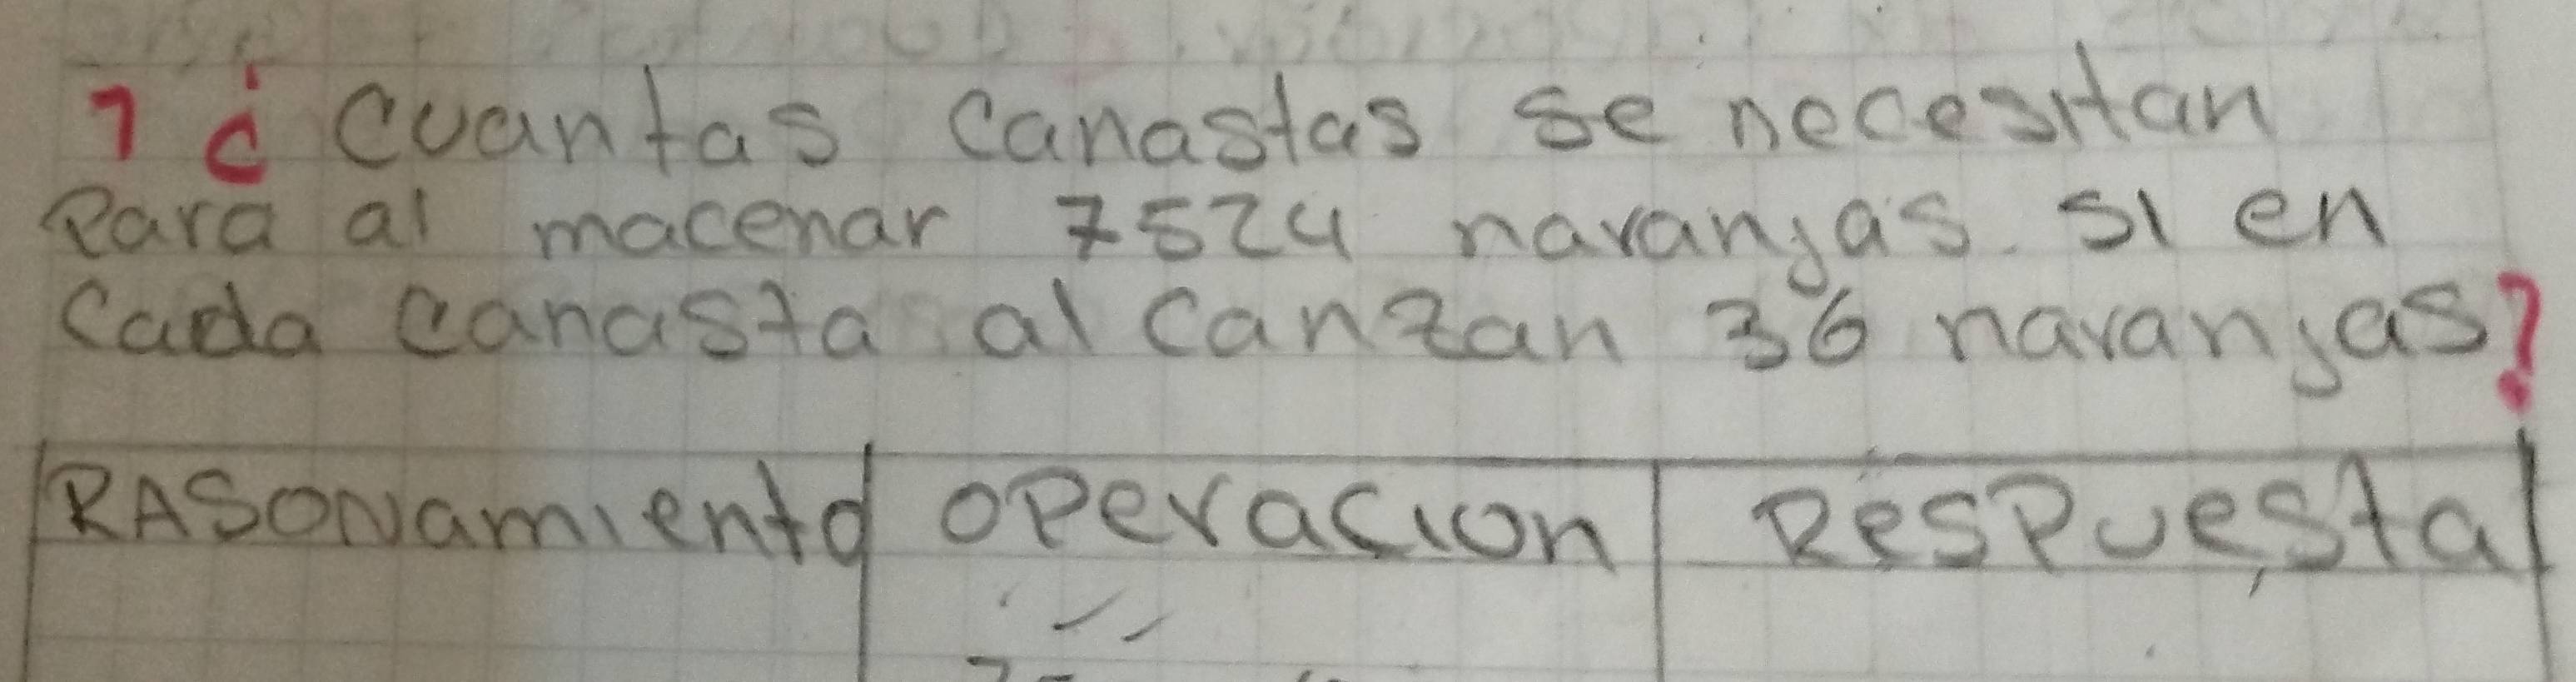 1 ¿ Cuantas canastas se necesitan
Para al macenar 7524 naranjas. si en
Cada canasta al canzan 36 naranjas?
RASONamiento operacion Respuesta